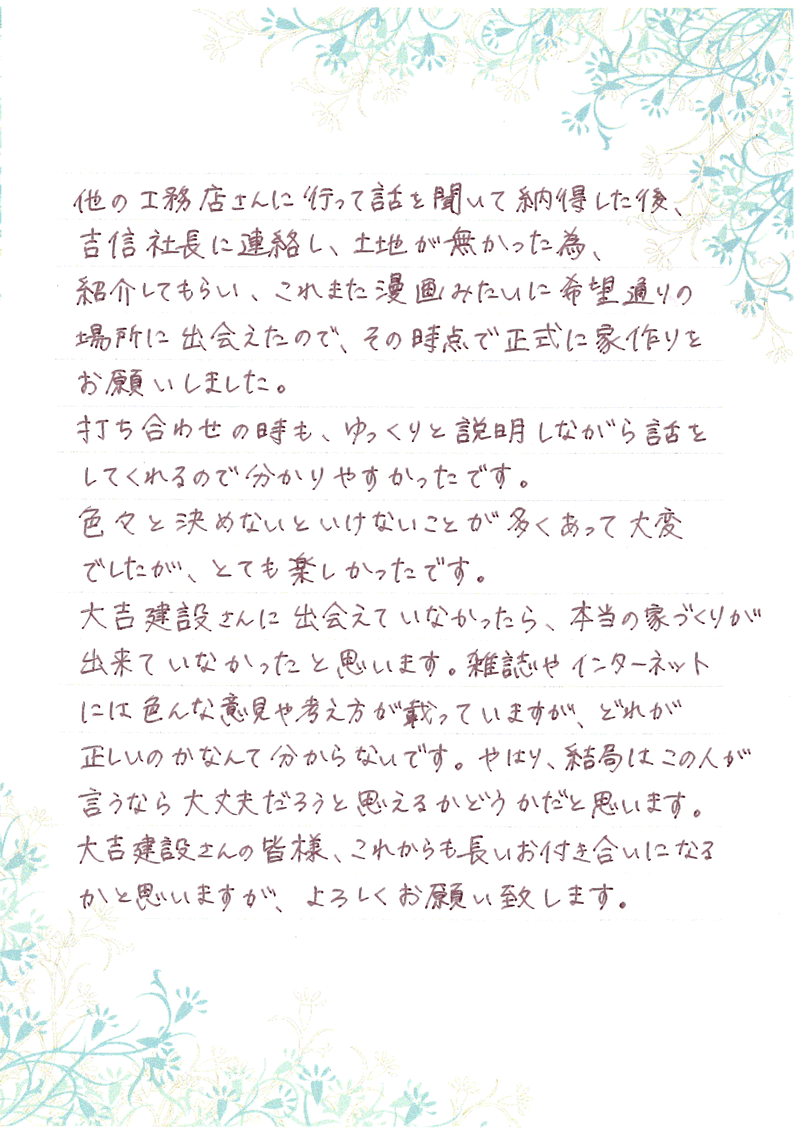 他の工務店さんに行って話を聞いて納得した後、
吉信社長に連絡し、土地が無かった為、
紹介してもらい、これまた漫画みたいに希望通りの
場所に出会えたので、その時点で正式に家作りを
お願いしました。
打ち合わせの時も、ゆっくりと説明しながら話を
してくれるので分かりやすかったです。
色々と決めないといけないことが多くあって大変
でしたが、とても楽しかったです。
大吉建設さんに出会えていなかったら、本当の家づくりが
出来ていなかったと思います。雑誌やインターネット
には色んな意見や考え方が載っていますが、どれが
正しいのかなんて分からないです。やはり、結局はこの人が
言うなら大丈夫だろうと思えるかどうかだと思います。
大吉建設さんの皆様、これからも長いお付き合いになる
かと思いますが、よろしくお願い致します。